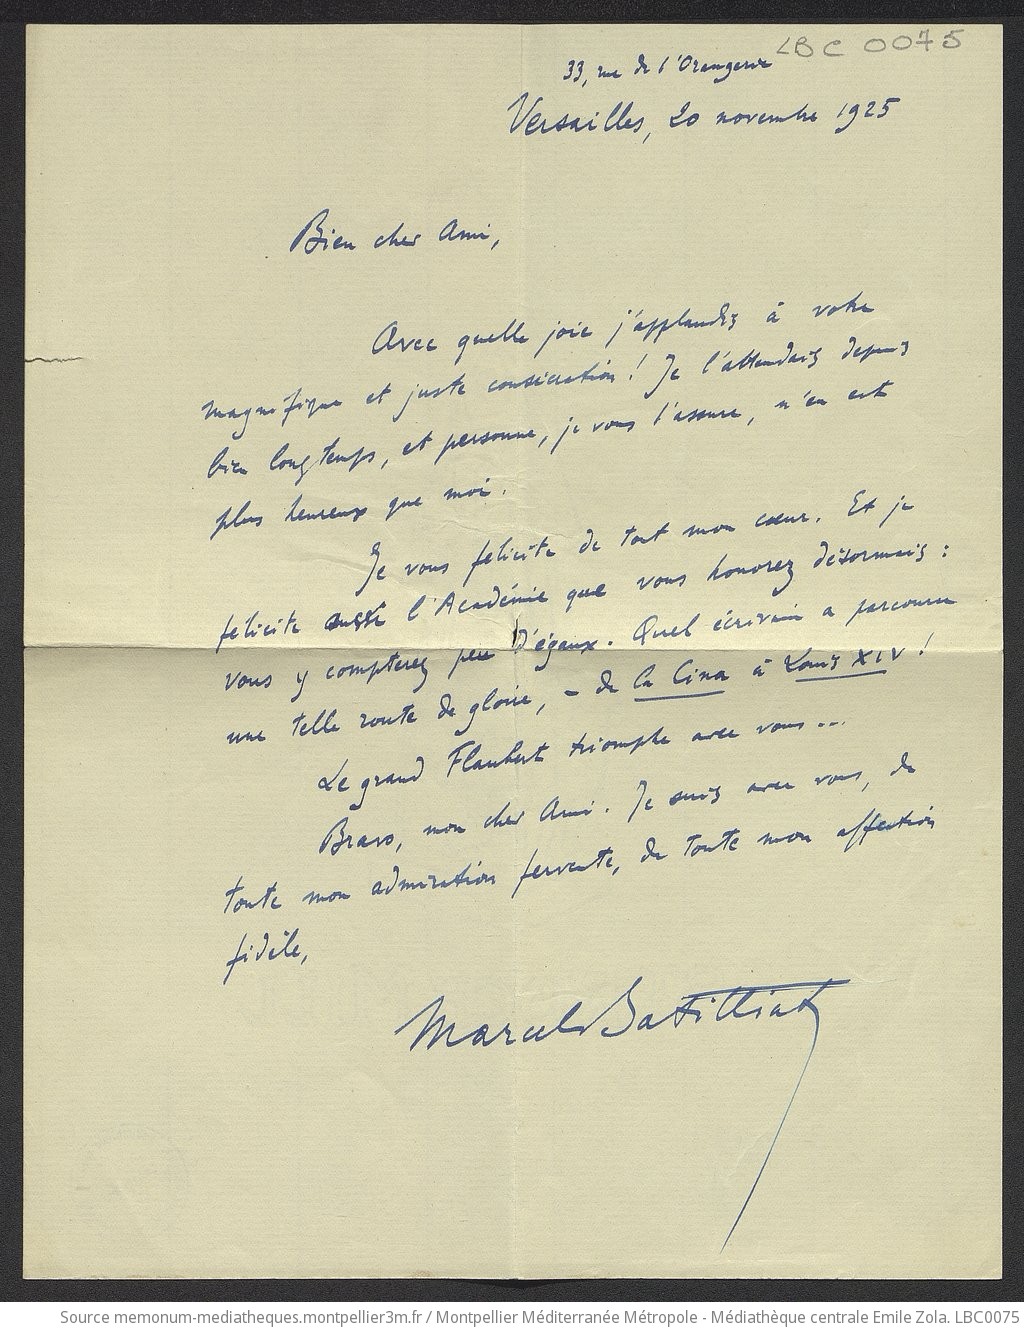 LBC 0075
33, rue de l'Orangerie
Versailles, 20 novembre 1925
Bien cher Ami,
Avec quelle joie j'applaudis à votre
magnifique et juste consécration ! Je l'attendais depuis
bien longtemps, et personne, je vous l'assure, n'en est
plus heureux que moi.
Je vous félicite de tout mon cœur. Et je
félicite aussi l'Académie que vous honorez désormais :
vous y compterez peu d'égaux. Quel écrivain a parcouru
une telle route de gloire, – de la Cina à Louis XIV !
Le grand Flaubert triomphe avec vous...
Bravo, mon cher Ami. Je suis avec vous, de
toute mon admiration fervente, de toute mon affection
fidèle,
Marcel Batilliat
Source memonum-mediatheques.montpellier3m.fr / Montpellier Méditerranée Métropole - Médiathèque centrale Emile Zola. LBC0075